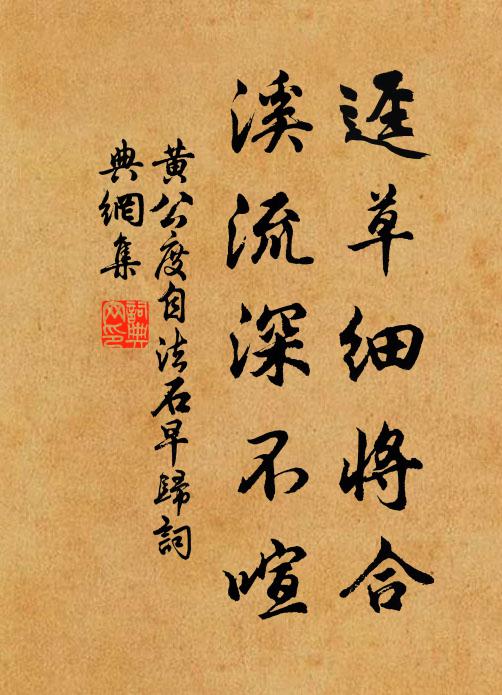 逕草細將合
溪流深不喧
黄公度自法石早歸詞
典網集
詞典網印